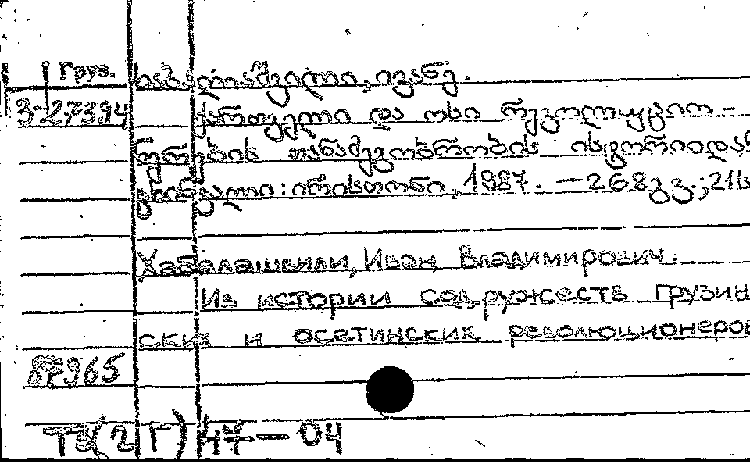 Груз. ხაბალიაშვილი, ივანე.
3-27394 ქართველი და ოსი რევოლუციო-
ნერების თანამეგობრობის ისტორიიდან
ცხინვალი: ირისთონი, 1987. — 268გვ.; 21ს
Хабалашвили, Иван Владимирович.
Из истории содружеств грузин
ских и осетинских революционеров
87965
47-04